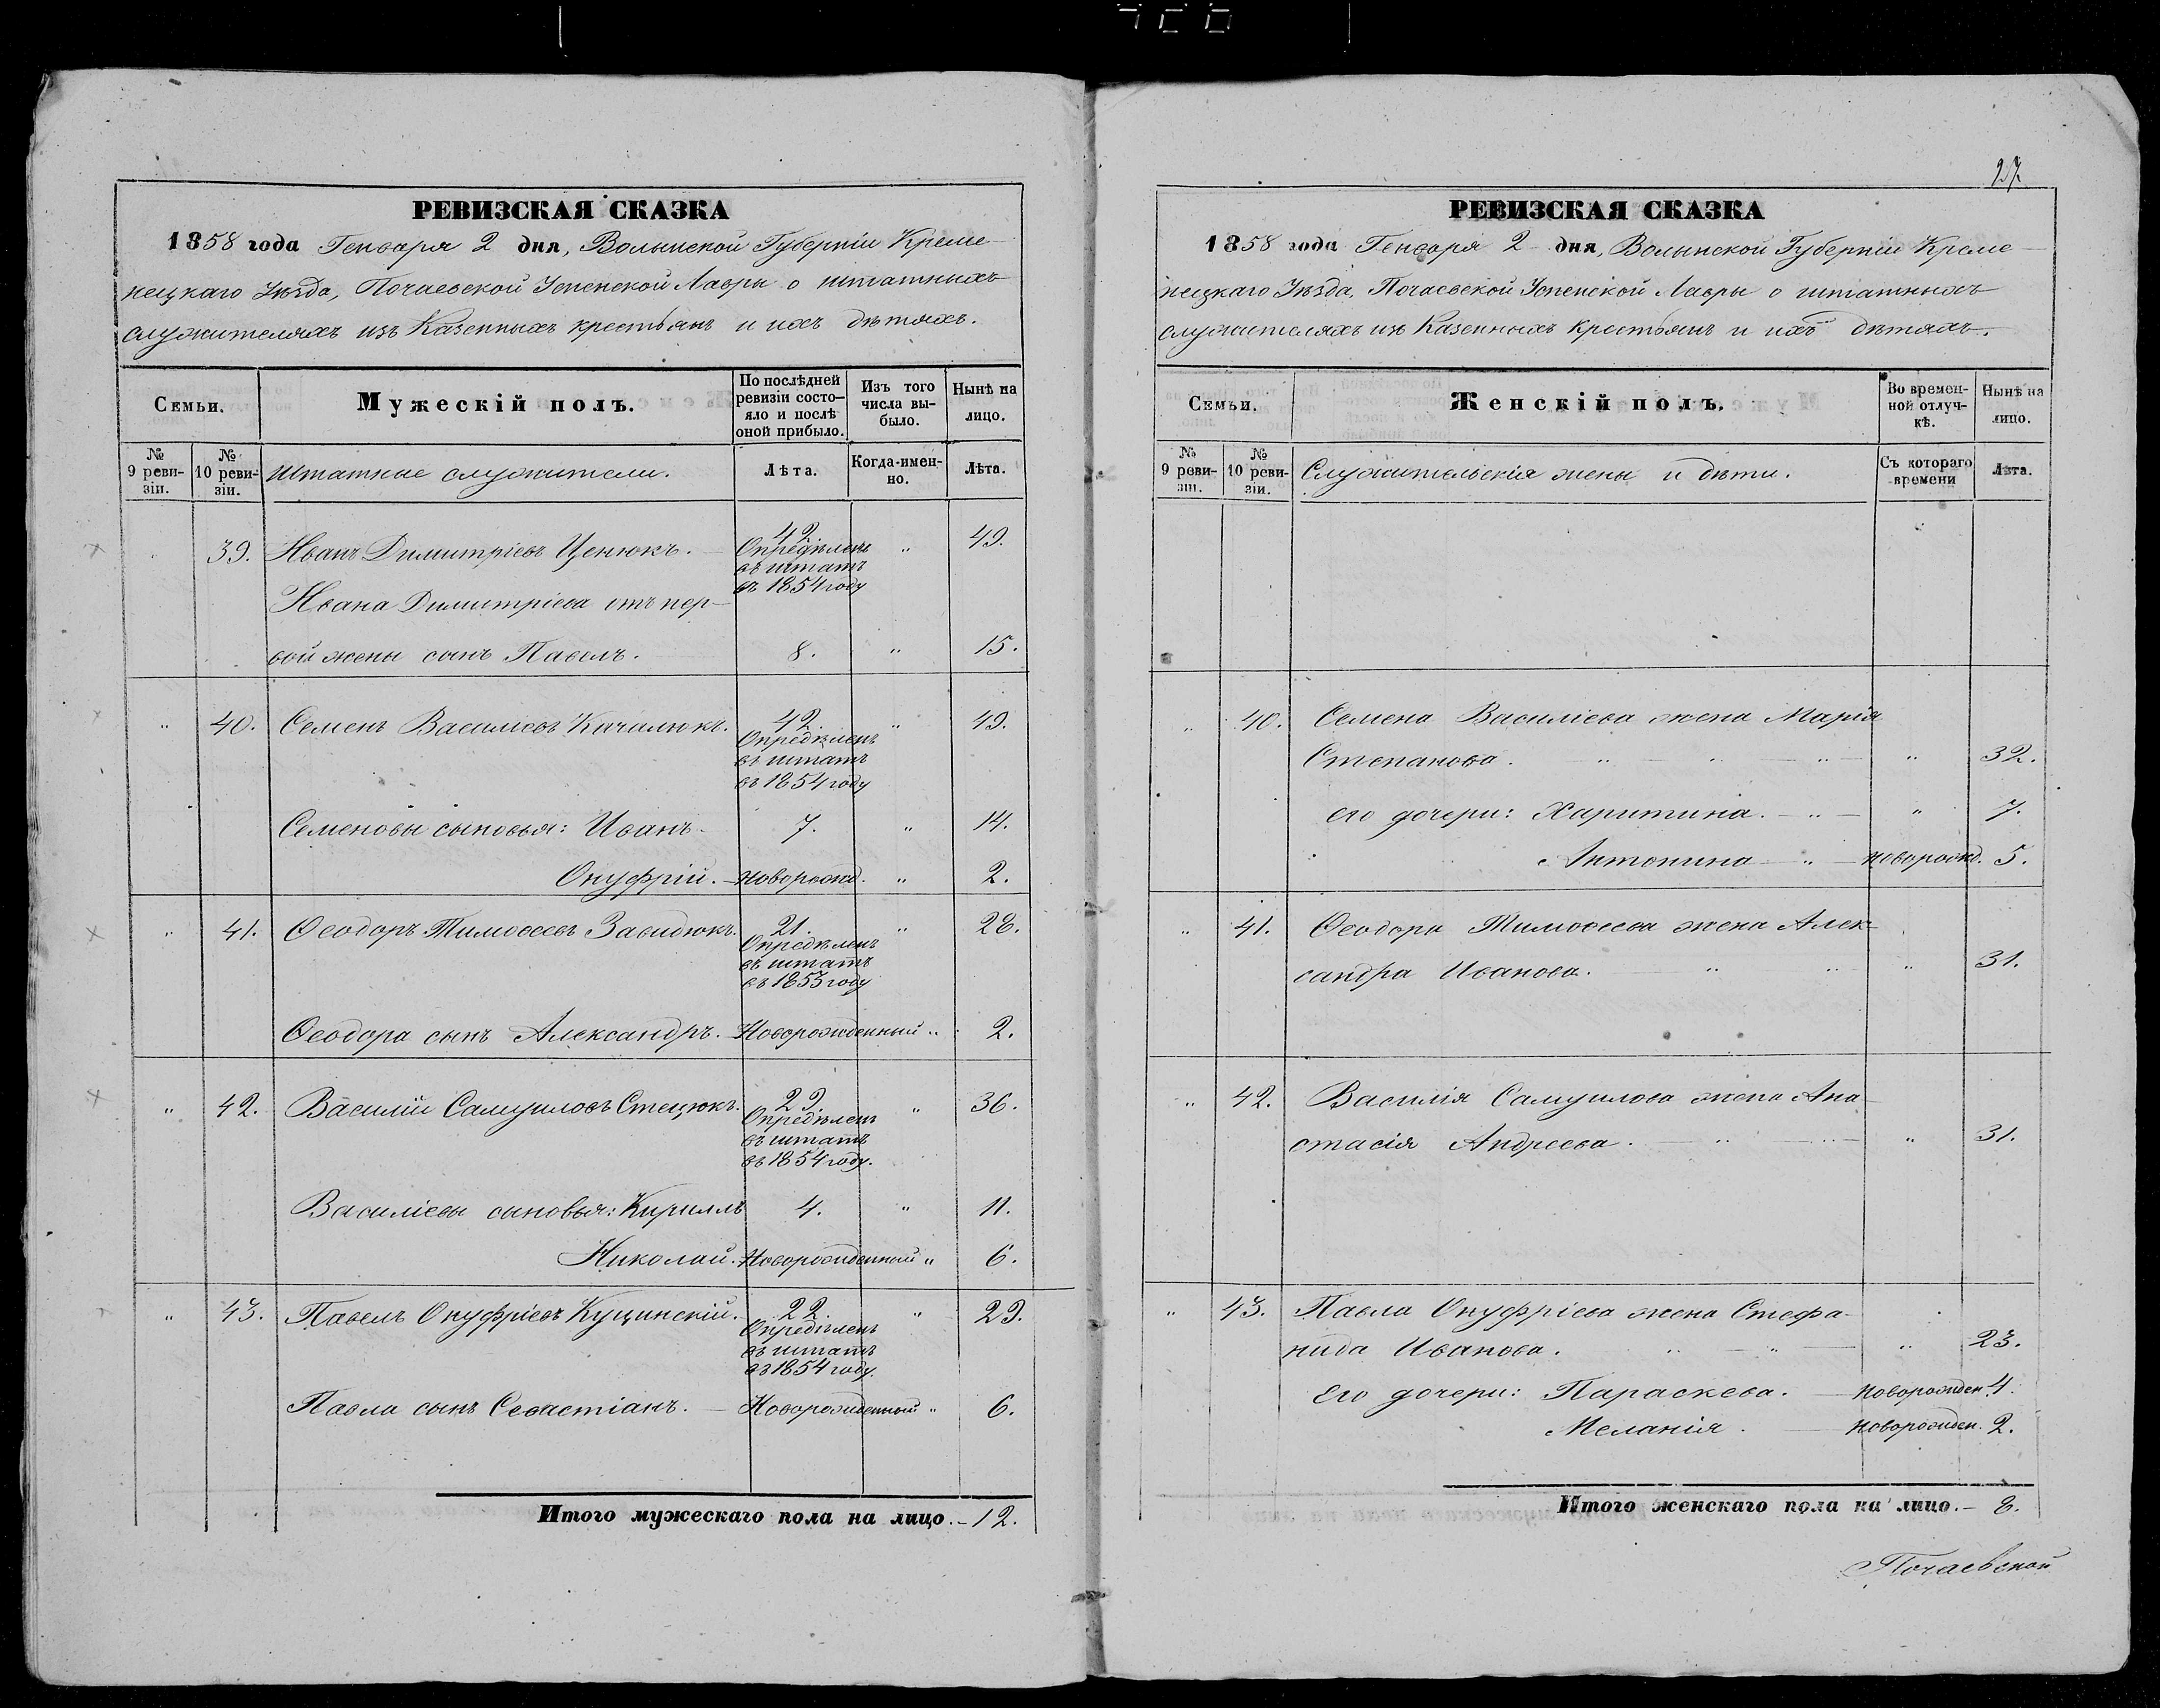 РЕВИЗСКАЯ СКАЗКА
1858 года Генваря 2 дня, Волынской Губерніи Креме-
нецкаго Уѣзда, Почаевской Успенской Лавры о штатныхъ
служителяхъ изъ Казенныхъ крестьянъ и ихъ дѣтяхъ.
Семьи. Мужескій полъ. По послѣдней ревизіи состо-яло и послѣ оной прибыло. Изъ того числа вы-было. Нынѣ на лицо.
№ 9 реви-зіи. № 10 реви-зіи. Штатные служители. Лѣта. Когда-имен-но. Лѣта.
39. Иванъ Димитріевъ Ценюкъ. 42. " 49.
Опредѣленъ
въ штатъ
въ 1854 году
Ивана Димитріева отъ пер-
вой жены сынъ Павелъ. 8. " 15.
" 40. Семенъ Василіевъ Качалюкъ. 42. " 49.
Опредѣленъ
въ штатъ
въ 1854 году
Семеновы сыновья: Иванъ. 7. " 14.
Онуфрій. Новорожд. " 2.
" 41. Ѳеодоръ Тимоѳеевъ Завидюкъ. 21. " 28.
Опредѣленъ
въ штатъ
въ 1853 году
Ѳеодора сынъ Александръ. Новорожденный " 2.
" 42. Василій Самуиловъ Стецюкъ. 29. " 36.
Опредѣленъ
въ штатъ
въ 1854 году.
Василіевы сыновья: Кириллъ 4. " 11.
Николай. Новорожденный " 6.
" 43. Павелъ Онуфріевъ Куцинскій. 22. " 29.
Опредѣленъ
въ штатъ
въ 1854 году.
Павла сынъ Севастіанъ. Новорожденный " 6.
Итого мужескаго пола на лицо. 12.
27.
РЕВИЗСКАЯ СКАЗКА
1858 года Генваря 2 дня, Волынской Губерніи Креме-
нецкаго Уѣзда, Почаевской Успенской Лавры о штатныхъ
служителяхъ изъ Казенныхъ крестьянъ и ихъ дѣтяхъ.
Семьи. Женскій полъ. Во времен-ной отлуч-кѣ. Нынѣ на лицо.
№ 9 реви-зіи. № 10 реви-зіи. Служительскія жены и дѣти. Съ котораго времени Лѣта.
" 40. Семена Василіева жена Марія
Степанова. " 32.
его дочери: Харитина. " 7.
Антонина " новорожд. 5.
" 41. Ѳеодора Тимоѳеева жена Алек-
сандра Иванова. " 31.
" 42. Василія Самуилова жена Ана-
стасія Андреева. " 31.
" 43. Павла Онуфріева жена Стефа-
нида Иванова. " 23.
Его дочери: Параскева. новорожден. 4.
Меланія. новорожден. 2.
Итого женскаго пола на лицо. 8.
Почаевской